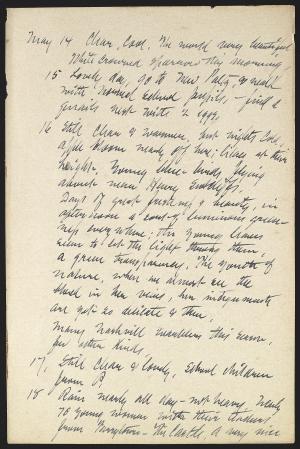 May 14 Clear, Cool. The world very beautiful
White crowned sparrow this morning
15 Lovely day, go to New Paltz, & walk
with Normal School pupils, find a
juncos nest with 2 eggs,
16 Still Clear & warmer, but nights Cool,
apple bloom nearly off here; lilacs at their
height. Young blue-birds flying
about near Henry
Days of great freshness & beauty, in
afternoon a sort of luminous green-
ness everywhere; the young leaves
seem to let the light through them,
a green transparency. The youth of
nature, when we almost see the
blood in her veins, her integuments
are yet so delicate & thin,
Many Nashville warblers this season,
few other kinds
17, Still Clear & lovely, School children
from P
18 Rain nearly all day - not heavy. Nearly
70 young women with their teachers
from Tarrytown - the Castle, a very nice